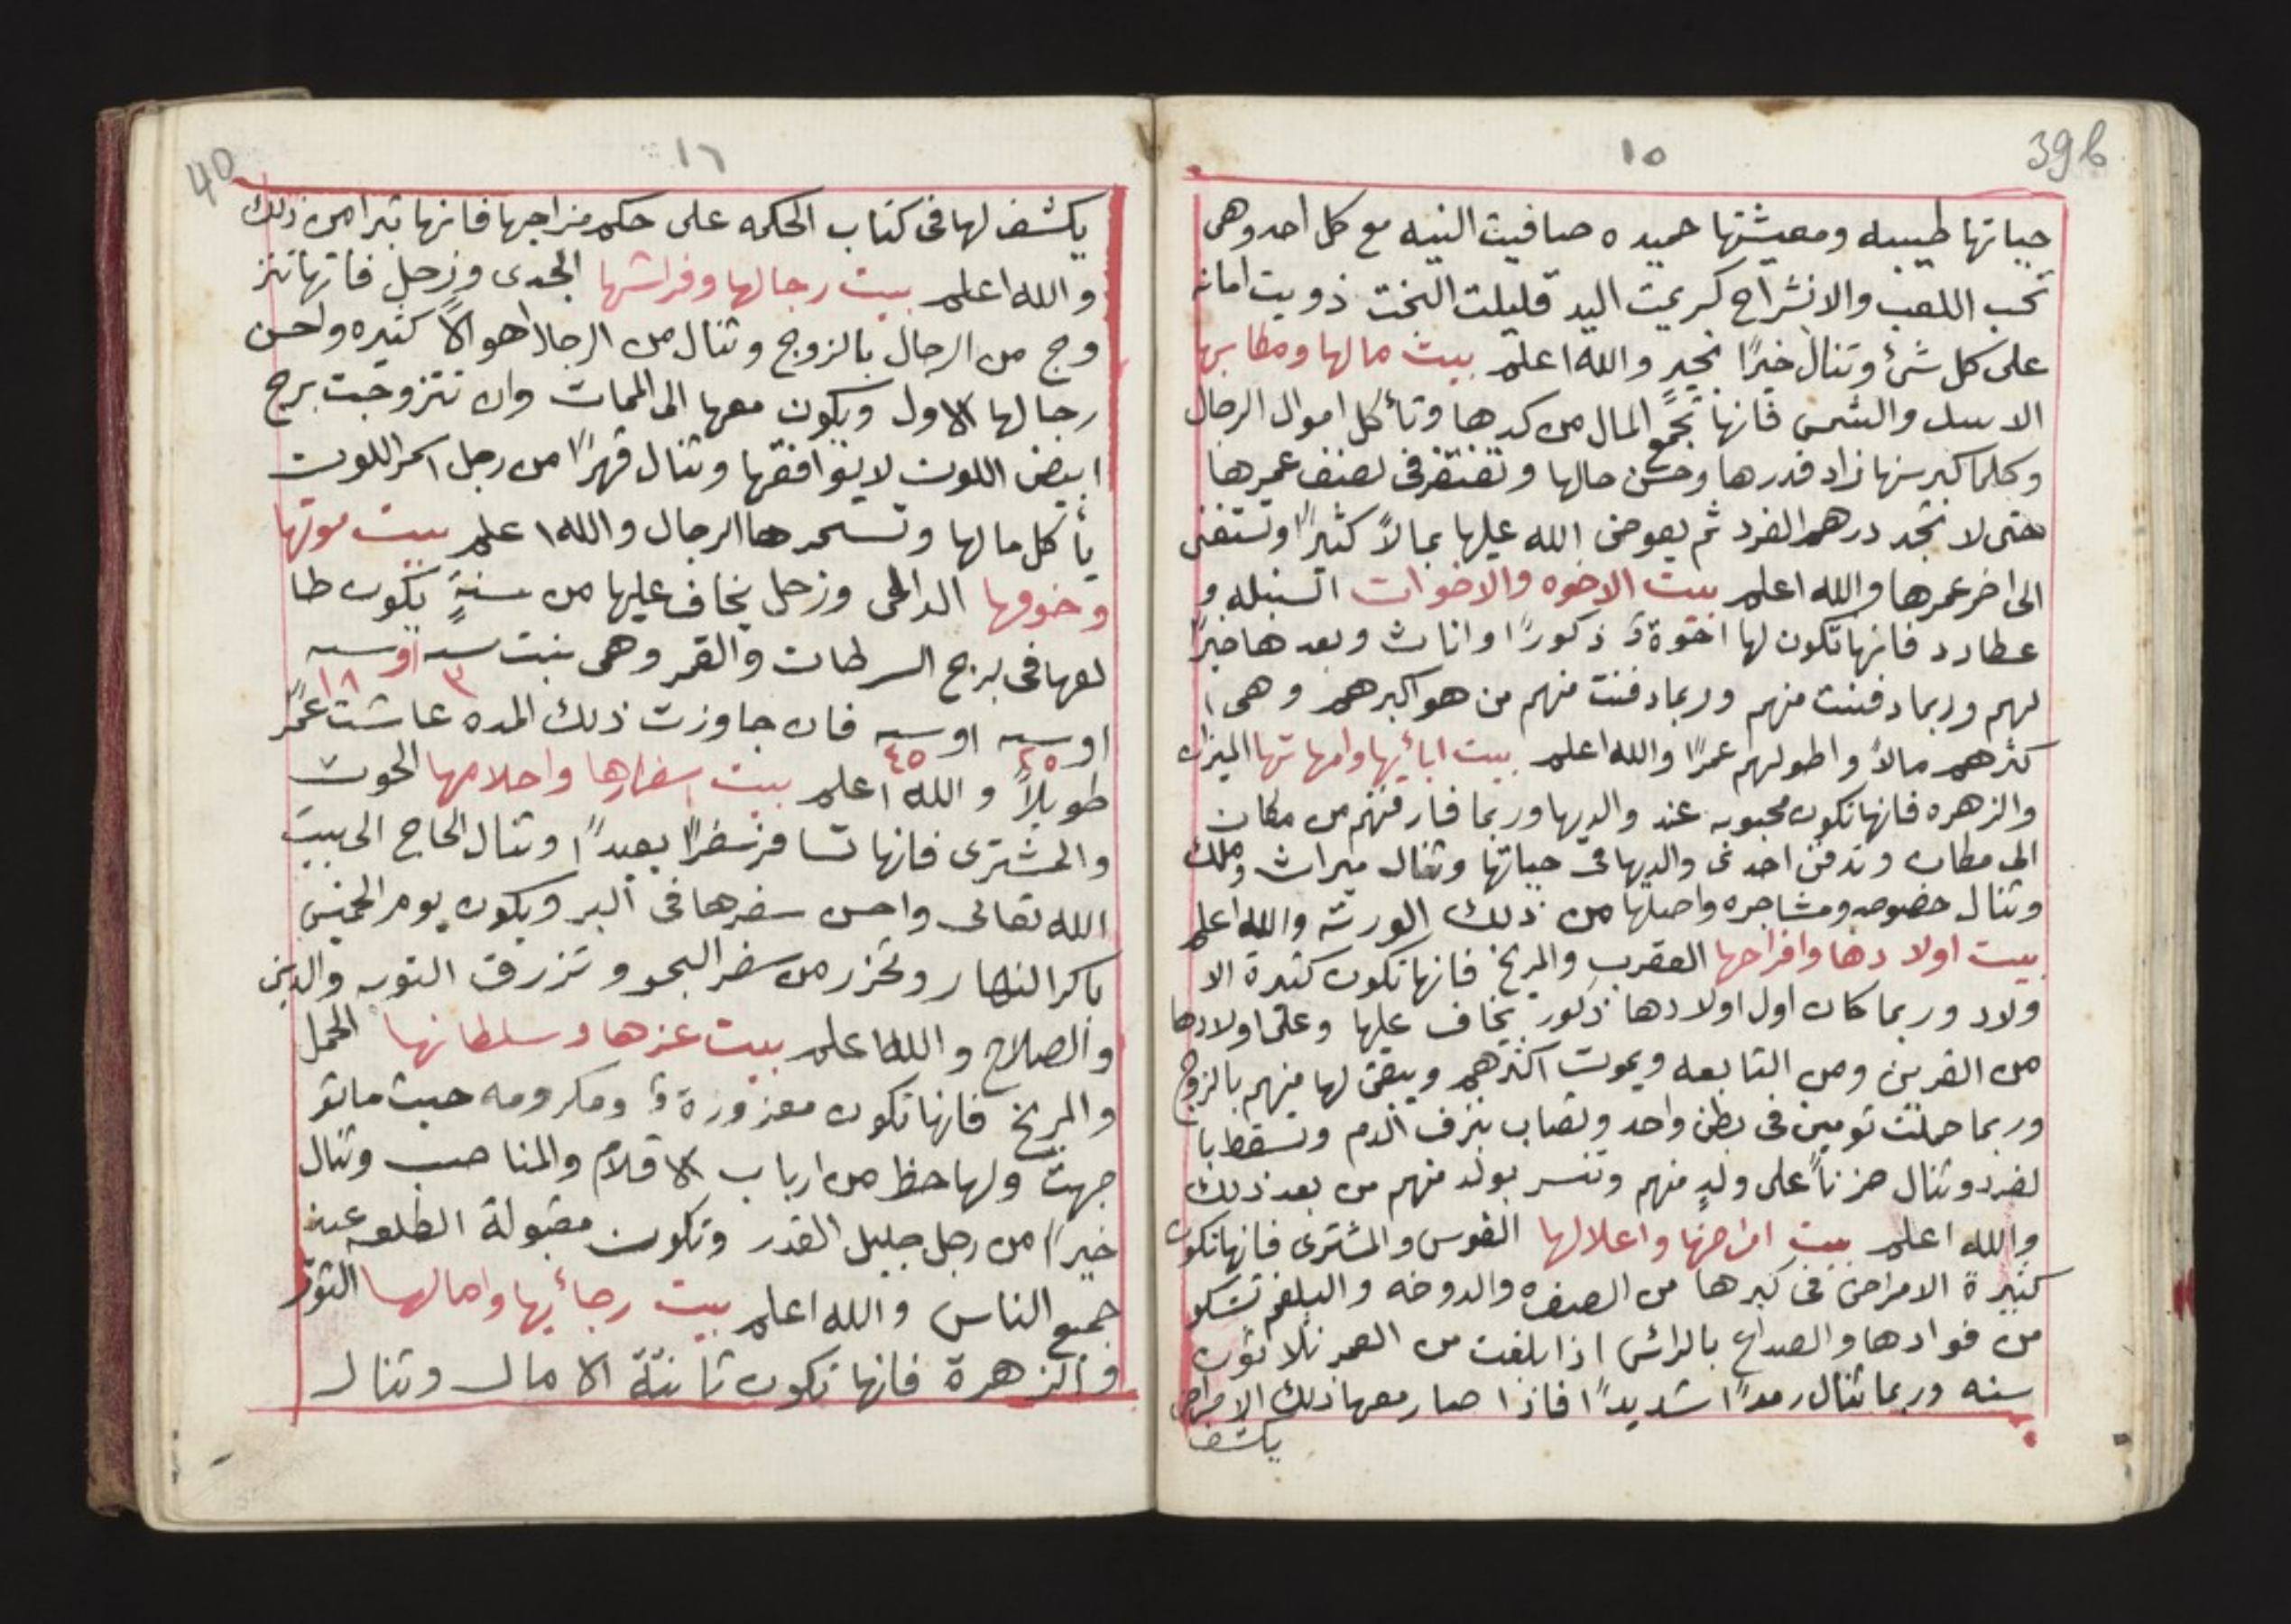 39b
١٥
حياتها طيبه ومعيشتها حميده صافيت النيه مع كل احد وهى
تحب اللعب والانشراح كريمت اليد قليلت البخت ذويت امانه
على كل شئ وتنال خيرًا بخيرٍ والله اعلم بيت مالها ومكاسبها
الاسد والشمس فانها تجمع المال من كدها وتأكل اموال الرجال
وكلما كبر سنها زاد قدرها وحسن حالها وتفتقر فى نصف عمرها
حتى لا تجد درهم الفرد ثم يعوض الله عليها بمالاً كثيرًا وتستغنى
الى اخر عمرها والله اعلم بيت الاخوه والاخوات السنبله و
عطارد فانها تكون لها اخوة ذكورًا واناث وبعدها خيرًا
لهم وربما دفنت منهم وربما دفنت منهم من هو اكبرهم وهى ا
كثرهم مالاً واطولهم عمرًا والله اعلم بيت ابائيها وامهاتها الميزان
والزهره فانها تكون محبوبه عند والديها وربما فارقتهم من مكان
الى مكان وتدفن احدى والديها فى حياتها وتنال ميراث وملك
وتنال خصومه ومشاجره واصلها من ذلك الورثه والله اعلم
بيت اولادها وافراحها العقرب والمريخ فانها تكون كثيرة الا
ولاد وربما كان اول اولادها ذكور يخاف عليها وعلى اولادها
من القرين ومن التابعه ويموت اكثرهم ويبقى لها منهم بالزوج
وربما حملت تومين فى بطن واحد وتصاب بنزف الدم وتسقط با
لفرد وتنال حزناً على ولدٍ منهم وتنسر بولد منهم من بعد ذلك
والله اعلم بيت امراضها واعلالها القوس والمشترى فانها تكون
كثيرة الامراض فى كبرها من الصفره والدوخه والبلغم تشكو
من فوادها والصداع بالرائس اذا بلغت من العمر ثلاثون
سنه وربما تنال رمدًا شديدًا فاذا صار معها ذلك الامراض
يكشف
40
١٦
يكشف لها فى كتاب الحكمه على حكم مزاجها فانها تبرا من ذلك
والله اعلم بيت رجالها وفراشها الجدى وزحل فانها تتز
وج من الرجال بالزوج وتنال من الرجال اهوالاً كثيره واحسن
رجالها الاول ويكون معها الى الممات وان تتزوجت برج
ابيض اللون لا يوافقها وتنال قهرًا من رجل اسمر اللون
يأكل مالها وتسحرها الرجال والله اعلم بيت موتها
وخوفها الدالى وزحل يخاف عليها من سنةٍ يكون طا
لعها فى برج السرطان والقمر وهى بنت سنه ٣ او سنه ١٨
او سنه ٢٥ او سنه ٤٥ فان جاوزت ذلك المده عاشت عمرًا
طويلاً والله اعلم بيت اسفارها واحلامها الحوت
والمشترى فانها تسافر سفرًا بعيدًا وتنال الحاج الى بيت
الله تعالى واحسن سفرها فى البر ويكون يوم الخميس
باكر النهار وتحزر من سفر البحر وتزرق التوبه والدين
والصلاح والله اعلم بيت عزها وسلطانها الحمل
والمريخ فانها تكون معزوزة ومكرومه حيث ما تو
جهت ولها حظ من ارباب الاقلام والمناصب وتنال
خيرًا من رجل جليل القدر وتكون مقبولة الطلعه عند
جميع الناس والله اعلم بيت رجائيها وامالها الثور
والزهرة فانها تكون ثابتة الامال وتنال